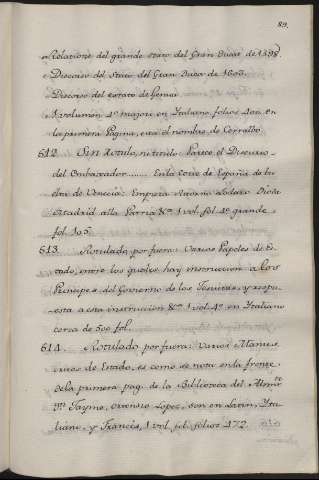 89.
Relatione del grande stato del Gran Ducae de 1598.
Discorso del Stato del Gran Duca de 1600.
Discorso del estato de Genoa
1 volumen 4º major en Italiano folios 400 en
la primera Pagina, esta el nombre de Corralto.
612. Sin Rotulo, ni titulo. Parece el Discurso
del Embaxador....... En la Corte de España de
de Venecia. Empieza
Madrid alla Patria &ca 1 vol. fol. 4º grande
fol. 105.
613. Rotulado por fuera: Varios Papeles de Es-
tado, entre los quales hay instruccion a los
Principes del Governo de los Jesuitas, y respu-
esta a esta instruccion &ca 1 vol. 4º en Italiano
cerca de 500 fol.
614. Rotulado por fuera: Varios Manus-
critos de Estado, es como se nota en la frente
de la primera pag. de la Biblioteca del
Dn Jayme, Lopez, son en Latin, Yta-
liano, y Francés, 1 vol. fol. folios 472.